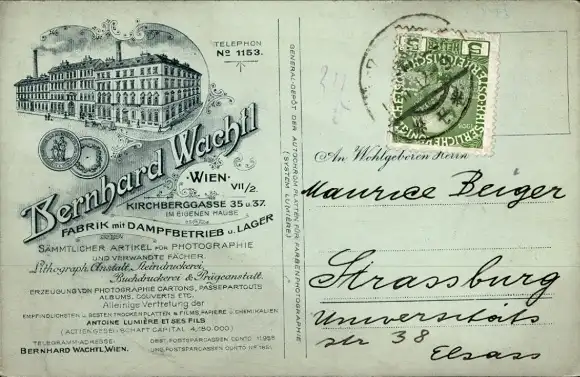 TELEPHON
No 1153.
Bernhard Wachtl
WIEN
VII/2.
KIRCHBERGGASSE 35 u. 37.
IM EIGENEN HAUSE
FABRIK mit DAMPFBETRIEB u. LAGER
SÄMMTLICHER ARTIKEL FÜR PHOTOGRAPHIE
UND VERWANDTE FÄCHER.
Lithograph. Anstalt, Steindruckerei,
Buchdruckerei & Prägeanstalt.
ERZEUGUNG VON PHOTOGRAPHIE CARTONS, PASSEPARTOUTS
ALBUMS, COUVERTS ETC.
Alleinige Vertretung der
EMPFINDLICHSTEN u. BESTEN TROCKEN PLATTEN & FILMS, PAPIERE u. CHEMIKALIEN
ANTOINE LUMIÈRE ET SES FILS
(ACTIENGESELLSCHAFT CAPITAL 4,180.000)
TELEGRAMM-ADRESSE:
BERNHARD WACHTL, WIEN.
ÖST. POSTSPARCASSEN CONTO 11.958
UNG. POSTSPARCASSEN CONTO No 1651.
GENERAL-DEPÔT DER AUTOCHROM-PLATTEN FÜR FARBENPHOTOGRAPHIE
(SYSTEM LUMIÈRE)
An Wohlgeboren Herrn
Maurice Beiger
Strassburg
Universitäts
str 38
Elsass